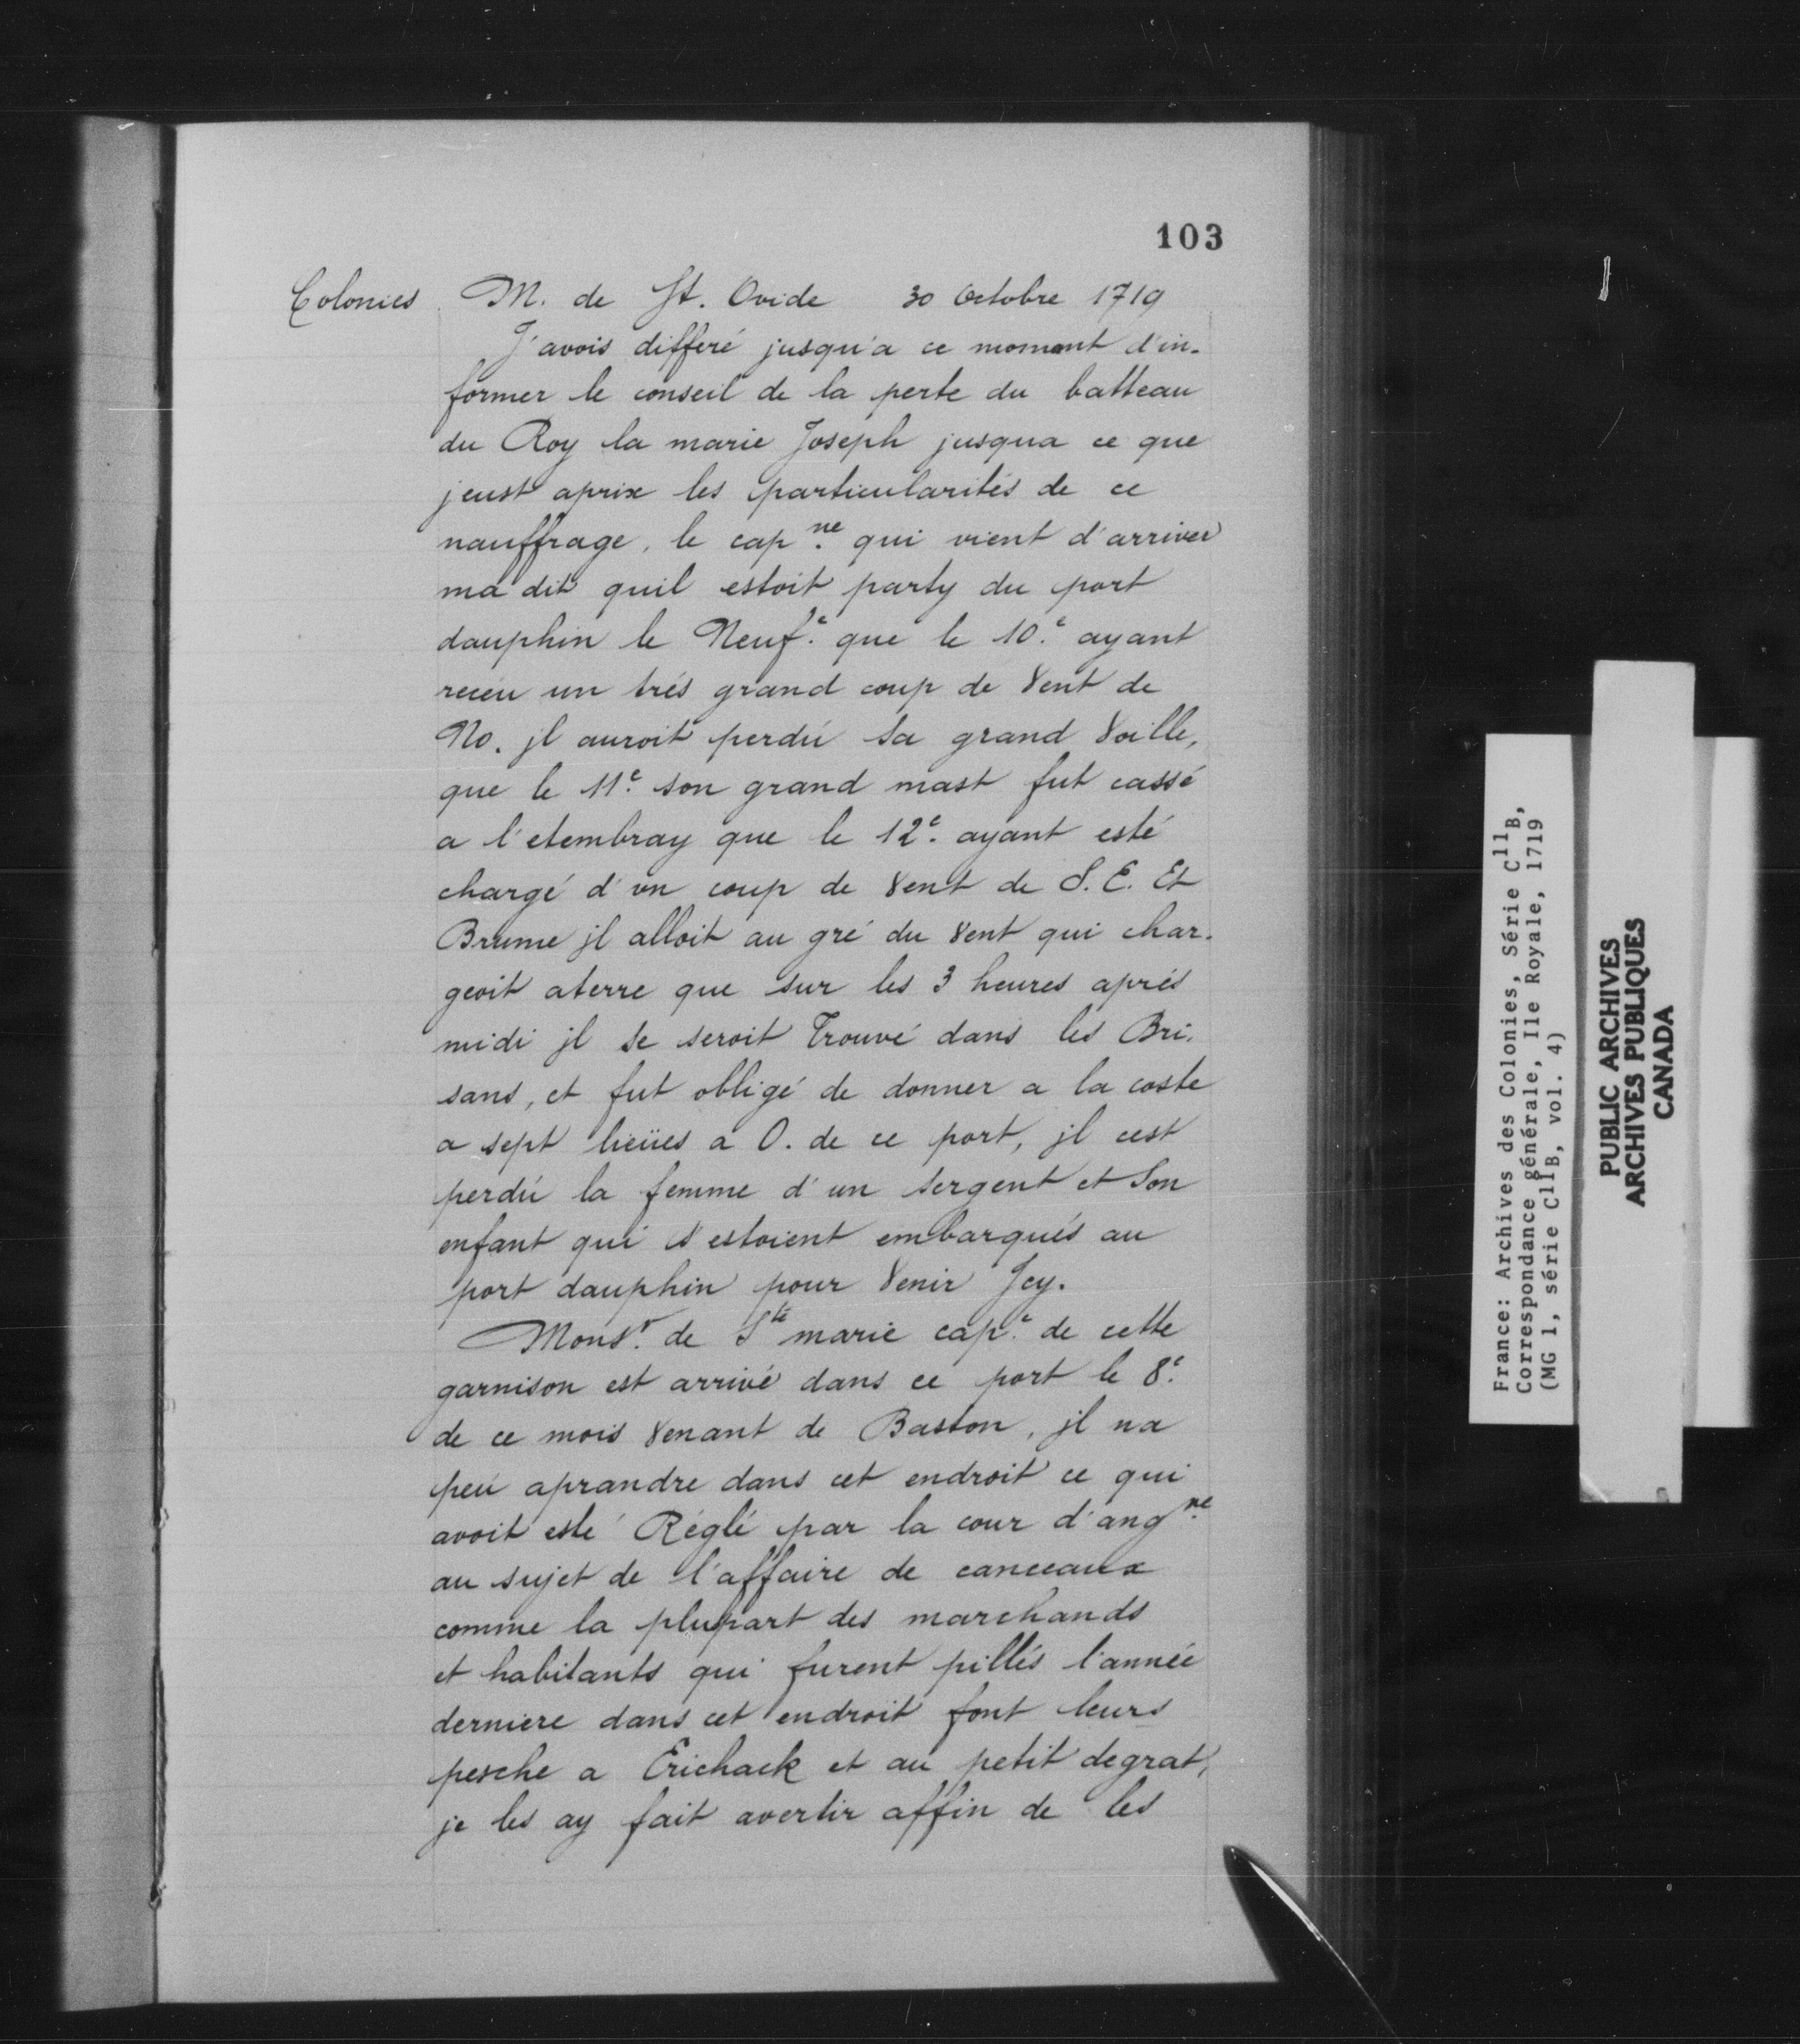 103
Colonies M. de St. Ovide 30 Octobre 1719
J'avois differé jusqu'a ce momant d'in-
former le conseil de la perte du batteau
du Roy la marie Joseph jusqua ce que
jeust aprix les particularités de ce
nauffrage, le cap.ne qui vient d'arriver
ma dit quil estoit party du port
dauphin le Neuf.e que le 10.e ayant
reçeu un trés grand coup de Vent de
No. jl auroit perdú sa grand Voille,
que le 11.e son grand mast fut cassé
a l'etembray que le 12.e ayant esté
chargé d'vn coup de Vent de S. E. Et
Brume jl alloit au gré du Vent qui char-
geoit aterre que sur les 3 heures aprés
midi jl se seroit Trouvé dans les Bri-
sans, et fut obligé de donner a la coste
a sept lieües a O. de ce port, jl cest
perdú la femme d'un sergent et Son
enfant qui s estoient embarqués au
port dauphin pour Venir Jcy.
Mons.r de Ste marie cap.e de cette
garnison est arrivé dans ce port le 8.e
de ce mois Venant de Baston, jl na
peú aprandre dans cet endroit ce qui
avoit esté Réglé par la cour d'ang.re
au sujet de l'affaire de canceaux
comme la plupart des marchands
et habitants qui furent pillés l'année
derniere dans cet endroit font leurs
pesche a Erichack et au petit degrat,
je les ay fait avertir affin de les
France: Archives des Colonies, Série C11B,
Correspondance générale, Ile Royale, 1719
(MG 1, série C11B, vol. 4)
PUBLIC ARCHIVES
ARCHIVES PUBLIQUES
CANADA